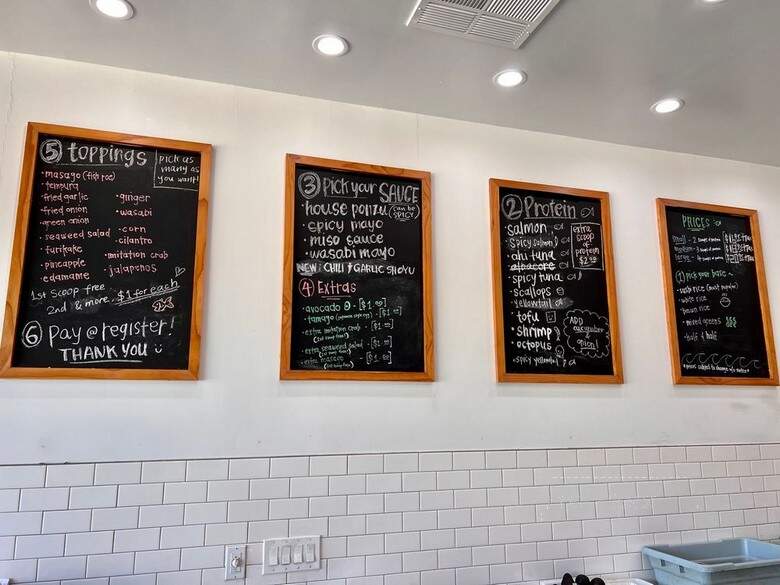 5 toppings
pick as
many as
you want!
• masago (fish roe)
• tempura
• fried garlic
• fried onion
• green onion
• seaweed salad
• furikake
• pineapple
• edamame
• ginger
• wasabi
• corn
• cilantro
• imitation crab
• jalapenos
1st scoop free
2nd & more. $1 for each
6 Pay @ register!
THANK YOU
3 Pick your SAUCE
• house ponzu (can be SPICY)
• spicy mayo
• miso sauce
• wasabi mayo
NEW CHILI & GARLIC SHOYU
4 Extras
• avocado • [$1]
• tamago
• extra imitation crab
• extra seaweed salad
• extra masago
2 Protein
• salmon
• spicy salmon
• ahi tuna
• albacore
• spicy tuna
• scallops
• yellowtail
• tofu
• shrimp
• octopus
• spicy yellowtail
extra
scoop
of
protein
ADD
cucumber
onion!
PRICES
1 pick your base
• white rice
• brown rice
• mixed greens
• half & half
• prices subject to change w/o notice •